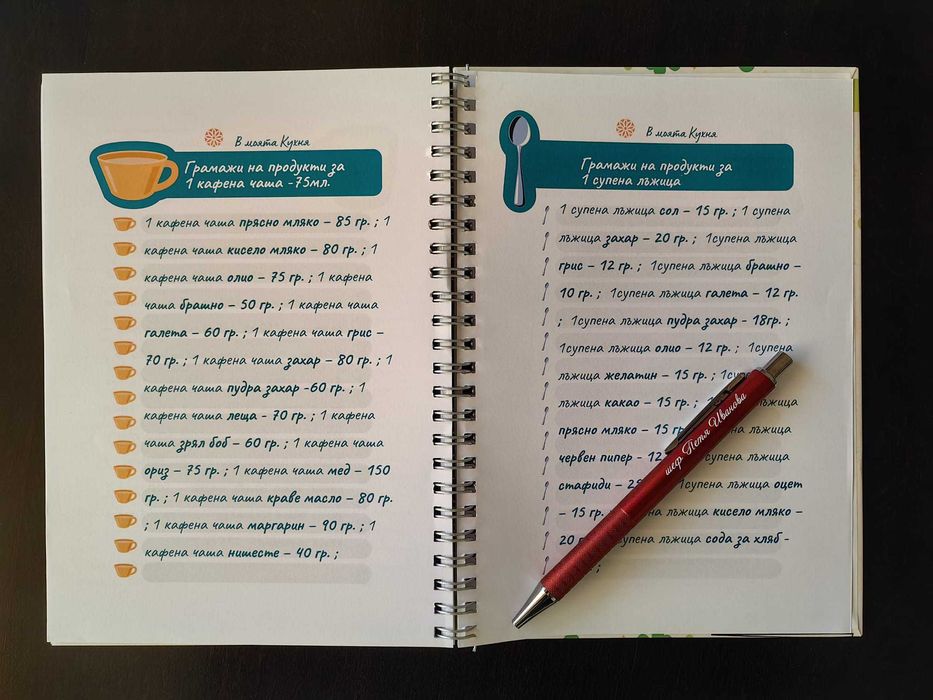 В моята Кухня
Грамажи на продукти за
1 кафена чаша -75мл.
1 кафена чаша прясно мляко – 85 гр. ; 1
кафена чаша кисело мляко – 80 гр. ; 1
кафена чаша олио – 75 гр. ; 1 кафена
чаша брашно – 50 гр. ; 1 кафена чаша
галета – 60 гр. ; 1 кафена чаша грис –
70 гр. ; 1 кафена чаша захар – 80 гр. ; 1
кафена чаша пудра захар -60 гр. ; 1
кафена чаша леща - 70 гр. ; 1 кафена
чаша зрял боб – 60 гр. ; 1 кафена чаша
ориз – 75 гр. ; 1 кафена чаша мед – 150
гр. ; 1 кафена чаша краве масло – 80 гр.
; 1 кафена чаша маргарин – 90 гр. ; 1
кафена чаша нишесте – 40 гр. ;
В моята Кухня
Грамажи на продукти за
1 супена лъжица
1 супена лъжица сол – 15 гр. ; 1 супена
лъжица захар – 20 гр. ; 1супена лъжица
грис – 12 гр. ; 1супена лъжица брашно –
10 гр. ; 1супена лъжица галета – 12 гр.
; 1супена лъжица пудра захар - 18гр. ;
1супена лъжица олио – 12 гр. ; 1супена
лъжица желатин – 15 гр. ;
лъжица какао – 15 гр. ; лъжица
прясно мляко – 15 гр.
червен пипер - 12 супена лъжица
стафиди – 1супена лъжица оцет
– 15 гр. лъжица кисело мляко –
20 лъжица сода за хляб -
;
шеф Петя Иванова